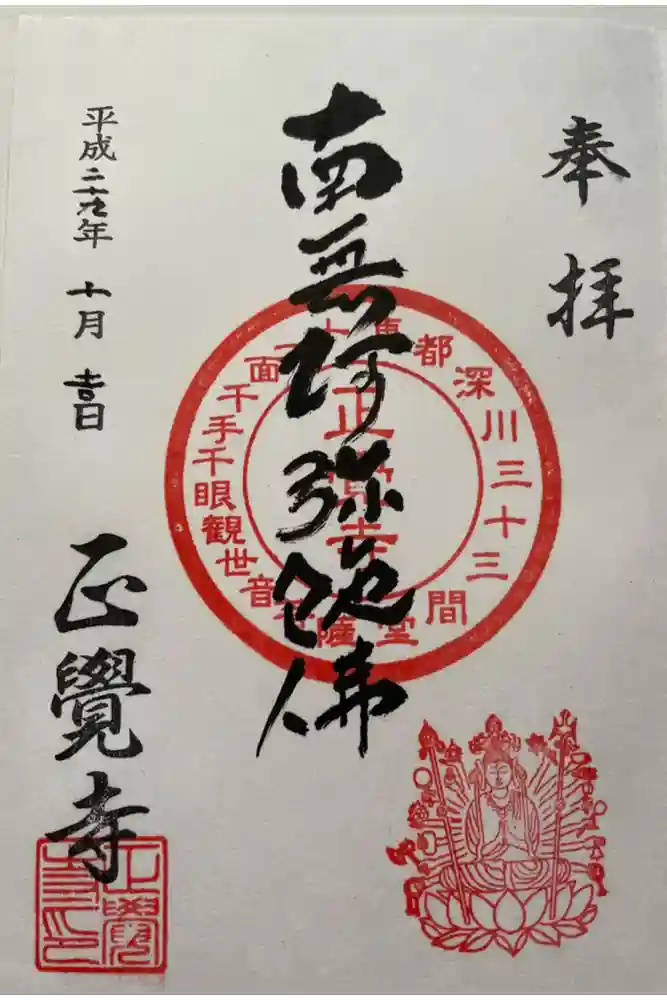 奉拝
南無阿弥陀佛
東都深川三十三間堂
十一面千手千眼観世音菩薩
平成二十九年 十月 吉日
正覺寺
正覺寺印